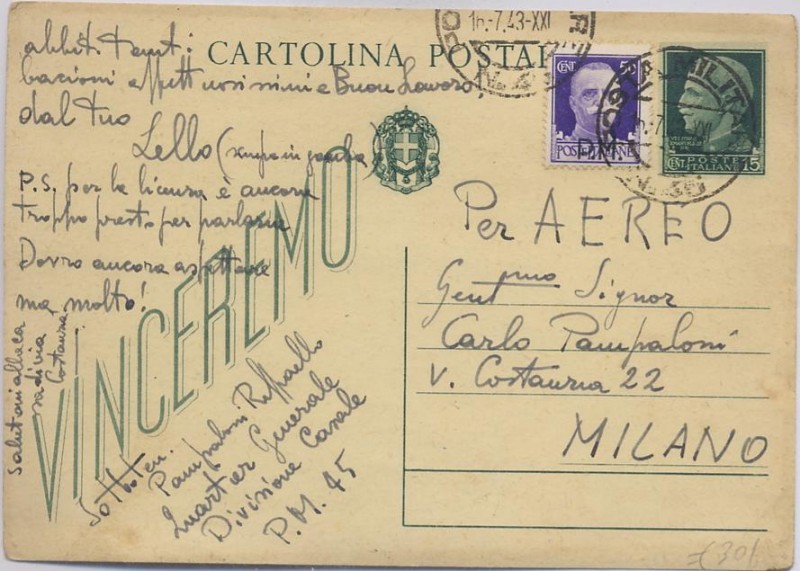 CARTOLINA POSTALE
16.-7.43-XXI
CENT 50
POSTE ITALIANE
POSTE ITALIANE
CENT 15
abbiti tanti
bacioni affettuosissimi e Buon Lavoro
dal tuo
Lello
P.S. per la licenza è ancora
troppo presto per parlarne
Dovrò ancora aspettare
ma molto!
Saluti alla ca
sa di via
Costanza
VINCEREMO
Sottoten.
Pampaloni Raffaello
Quartier Generale
Divisione Casale
P.M. 45
Per AEREO
Gent.mo Signor
Carlo Pampaloni
V. Costanza 22
MILANO